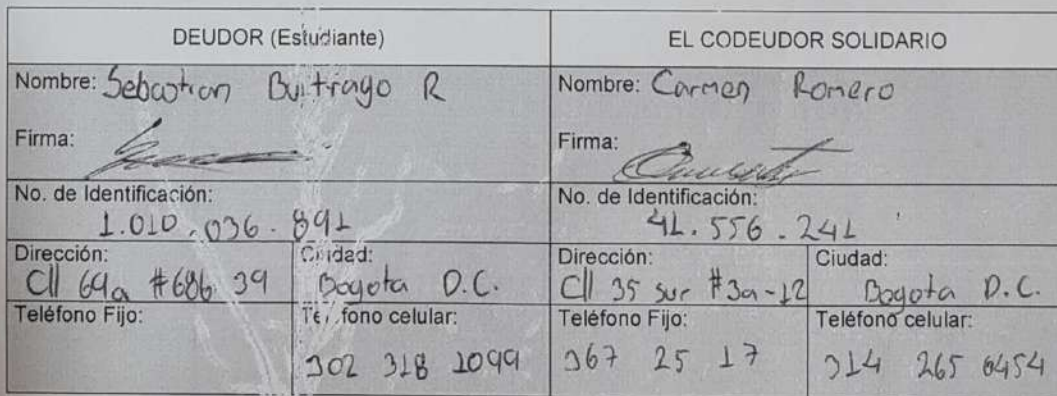 DEUDOR (Estudiante)
EL CODEUDOR SOLIDARIO
Nombre: Sebastian Buitrago R
Nombre: Carmen Romero
Firma:
Firma:
No. de Identificación:
1.010.036.891
No. de Identificación:
41.556.241
Dirección:
Cll 69a #68b 39
Ciudad:
Bogota D.C.
Dirección:
Cll 35 sur #3a-12
Ciudad:
Bogota D.C.
Teléfono Fijo:
Teléfono celular:
302 318 1099
Teléfono Fijo:
367 25 17
Teléfono celular:
314 265 6454